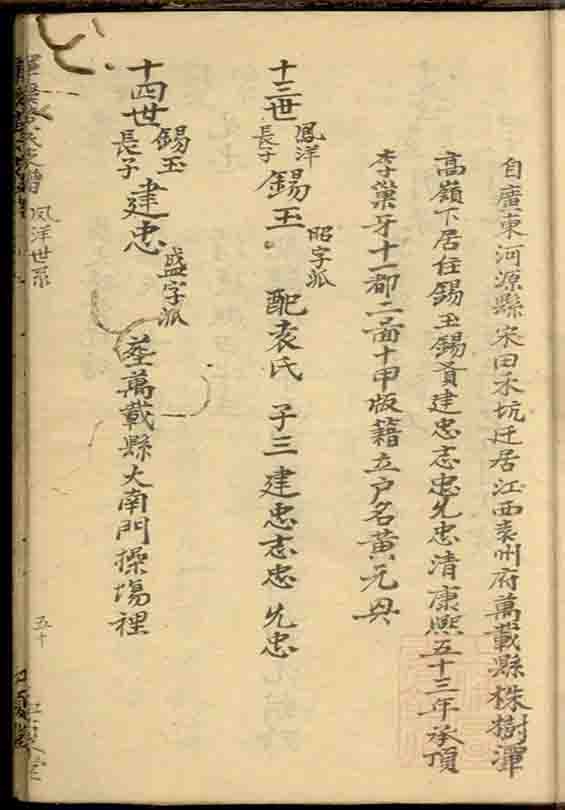 自廣東河源縣宋田禾坑迁居江西袁州府萬載縣株樹潭
高嶺下居住錫玉錫賚建忠志忠允忠清康熙五十三年承頂
李巢牙十一都二啚十甲版籍立户名黃元興
十三世 鳳洋長子 錫玉 昭字派 配袁氏 子三建忠志忠允忠
十四世 錫玉長子 建忠 盛字派 塟萬載縣大南門操塲裡
鳳洋世系
五十